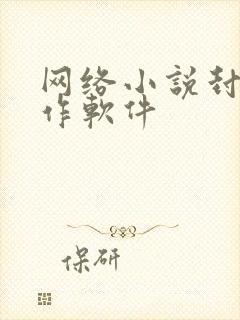 网络小説封
作軟件
保研